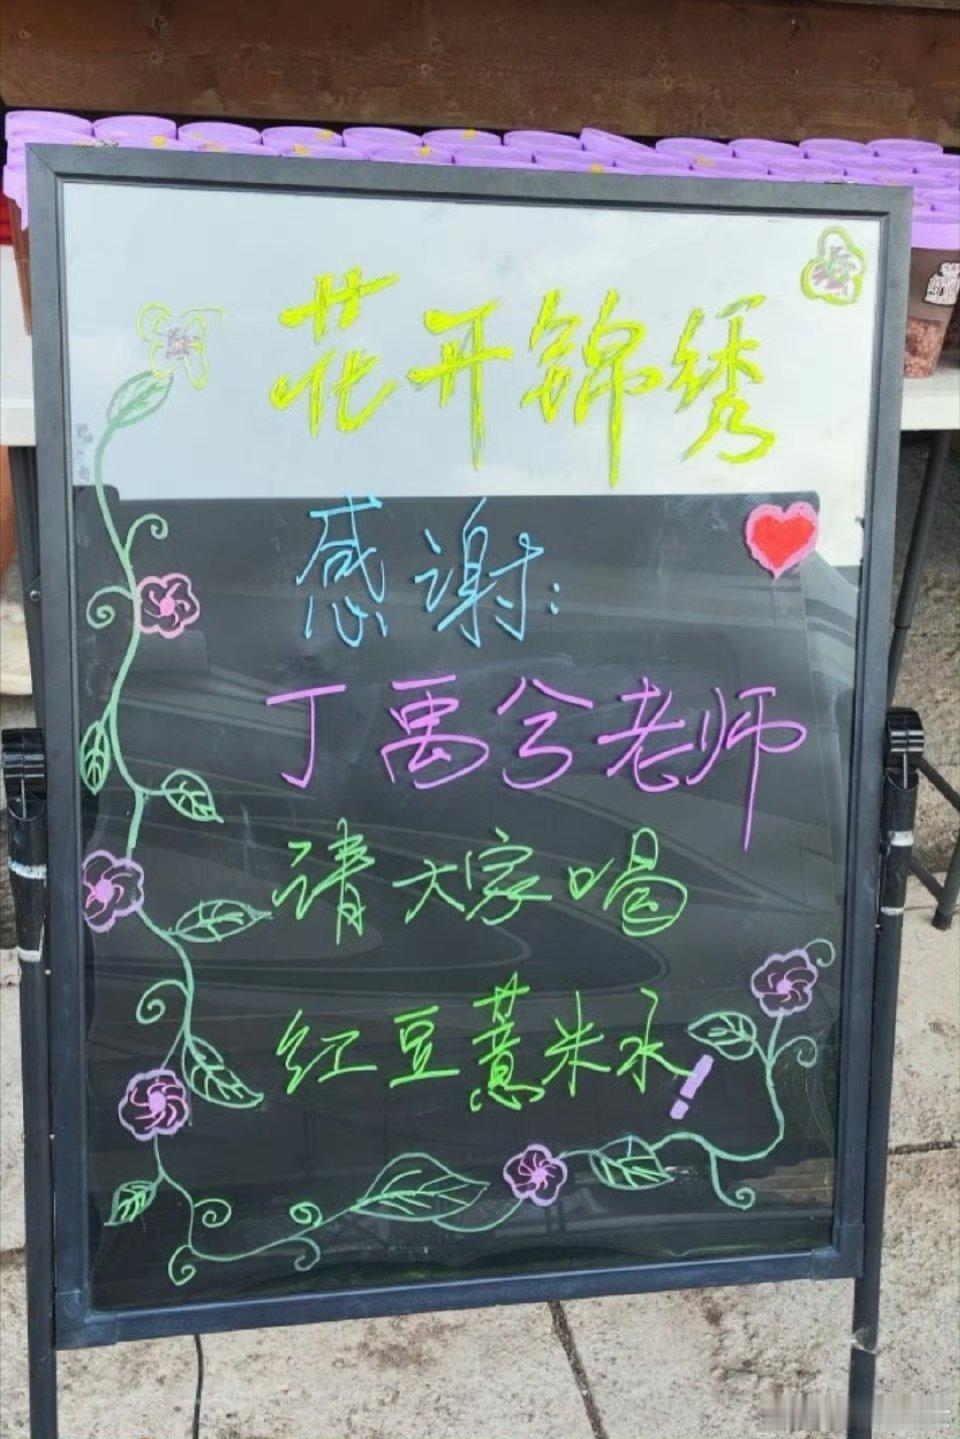 花开锦绣
感谢:
丁禹兮老师
请大家喝
红豆薏米水!